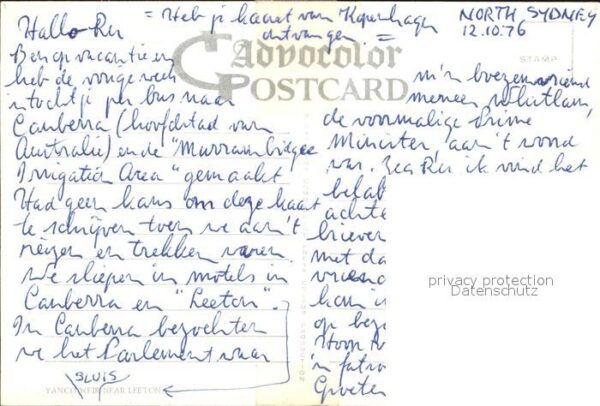 = Heb je kaart van Kopenhagen
ontvangen =
NORTH SYDNEY
12.10.76
Hallo Rei
Advocolor
POSTCARD
STAMP
Ben op vacantie en
heb de vorige week
'n tochtje per bus naar
Canberra (hoofdstad van
Australië) en de "Murrumbidgee
Irrigation Area" gemaakt
Had geen kans om deze kaart
te schrijven toen we aan't
reizen en trekken waren.
We sliepen in motels in
Canberra en "Leeton".
In Canberra bezochten
we het Parlement waar
SLUIS
YANCO WEIR NEAR LEETON
m'n boezemvriend
meneer Whitlam,
de voormalige Prime
Minister, aan't woord
was. Zeg Rei ik vind het
belab
achte
brieven
met da
vriend
kan i
op bez
Hoop
in
Groeten
privacy protection
Datenschutz